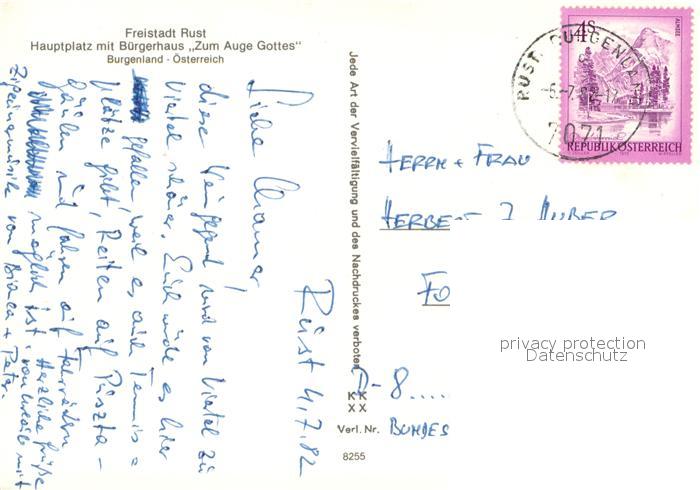 Freistadt Rust
Hauptplatz mit Bürgerhaus „Zum Auge Gottes"
Burgenland - Österreich
Rust 4.7.82
diese Weingegend wird von Viertel zu
Viertel schöner. Euch würde es hier
gefallen, weil es auch Tennis=
plätze gibt, Reiten auf Puszta-
Gäulen und fahren auf Fahrrädern
möglich ist. Herzliche Grüße
Zigeunermusik von Bianca + Peter.
Jede Art der Vervielfältigung und des Nachdruckes verboten
KK
XX
Verl. Nr.
8255
4S
ALMSEE
REPUBLIK ÖSTERREICH
RUST, BURGENLAND
-5.-7.82-17
7071
HERRN + FRAU
HUBER
D-8.....
BUNDES
privacy protection
Datenschutz